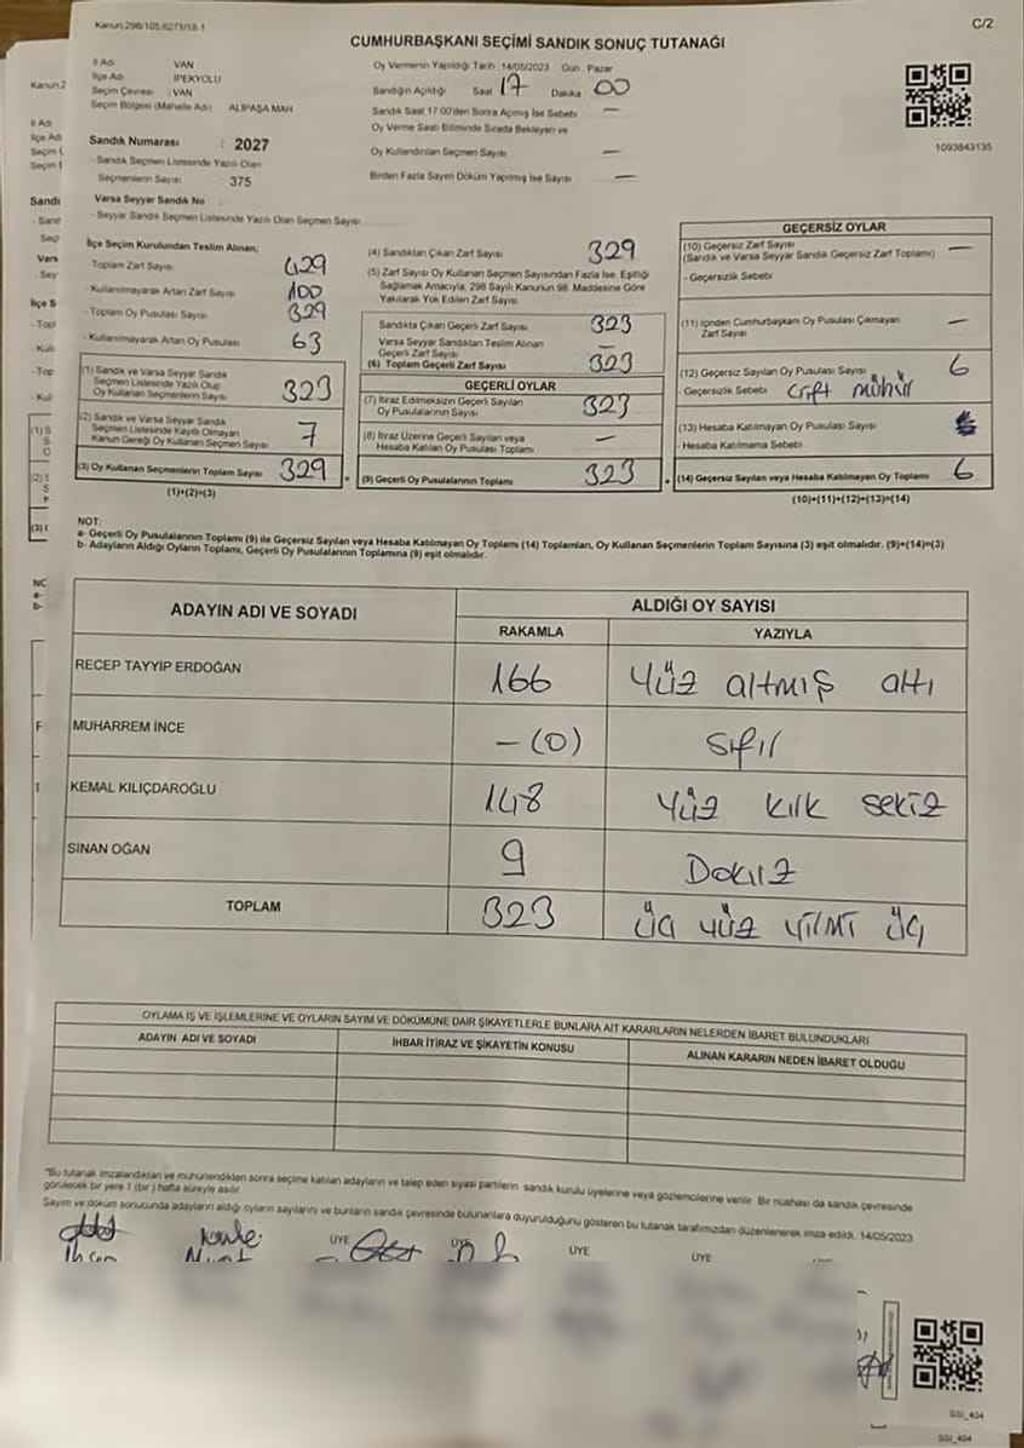 Kanun 298/105, 6271/18-1
C/2
CUMHURBAŞKANI SEÇİMİ SANDIK SONUÇ TUTANAĞI
İl Adı VAN
İlçe Adı İPEKYOLU
Seçim Çevresi : VAN
Seçim Bölgesi (Mahalle Adı) ALİPAŞA MAH
Sandık Numarası : 2027
- Sandık Seçmen Listesinde Yazılı Olan
Seçmenlerin Sayısı 375
Varsa Seyyar Sandık No
- Seyyar Sandık Seçmen Listesinde Yazılı Olan Seçmen Sayısı
Oy Vermenin Yapıldığı Tarih : 14/05/2023 Gün : Pazar
Sandığın Açıldığı Saat 17 Dakika 00
Sandık Saat 17:00'den Sonra Açılmış İse Sebebi —
Oy Verme Saati Bitiminde Sırada Bekleyen ve
Oy Kullandırılan Seçmen Sayısı —
Birden Fazla Sayım Döküm Yapılmış İse Sayısı —
1093843135
İlçe Seçim Kurulundan Teslim Alınan;
Toplam Zarf Sayısı 429
- Kullanılmayarak Artan Zarf Sayısı 100
- Toplam Oy Pusulası Sayısı 329
- Kullanılmayarak Artan Oy Pusulası 63
(1) Sandık ve Varsa Seyyar Sandık
Seçmen Listesinde Yazılı Olup
Oy Kullanan Seçmenlerin Sayısı 323
(2) Sandık ve Varsa Seyyar Sandık
Seçmen Listesinde Kayıtlı Olmayan
Kanun Gereği Oy Kullanan Seçmen Sayısı 7
(3) Oy Kullanan Seçmenlerin Toplam Sayısı 329
(1)+(2)=(3)
(4) Sandıktan Çıkan Zarf Sayısı 329
(5) Zarf Sayısı Oy Kullanan Seçmen Sayısından Fazla İse, Eşitliği
Sağlamak Amacıyla, 298 Sayılı Kanunun 98. Maddesine Göre
Yakılarak Yok Edilen Zarf Sayısı
Sandıkta Çıkan Geçerli Zarf Sayısı 323
Varsa Seyyar Sandıktan Teslim Alınan
Geçerli Zarf Sayısı —
(6) Toplam Geçerli Zarf Sayısı 323
GEÇERLİ OYLAR
(7) İtiraz Edilmeksizin Geçerli Sayılan
Oy Pusulalarının Sayısı 323
(8) İtiraz Üzerine Geçerli Sayılan veya
Hesaba Katılan Oy Pusulası Toplamı —
(9) Geçerli Oy Pusulalarının Toplamı 323
GEÇERSİZ OYLAR
(10) Geçersiz Zarf Sayısı —
(Sandık ve Varsa Seyyar Sandık Geçersiz Zarf Toplamı)
- Geçersizlik Sebebi
(11) İçinden Cumhurbaşkanı Oy Pusulası Çıkmayan
Zarf Sayısı —
(12) Geçersiz Sayılan Oy Pusulası Sayısı 6
- Geçersizlik Sebebi çift mühür
(13) Hesaba Katılmayan Oy Pusulası Sayısı
- Hesaba Katılmama Sebebi
(14) Geçersiz Sayılan veya Hesaba Katılmayan Oy Toplamı 6
(10)+(11)+(12)+(13)=(14)
NOT:
a- Geçerli Oy Pusulalarının Toplamı (9) ile Geçersiz Sayılan veya Hesaba Katılmayan Oy Toplamı (14) Toplamları, Oy Kullanan Seçmenlerin Toplam Sayısına (3) eşit olmalıdır. (9)+(14)=(3)
b- Adayların Aldığı Oyların Toplamı, Geçerli Oy Pusulalarının Toplamına (9) eşit olmalıdır.
ADAYIN ADI VE SOYADI
ALDIĞI OY SAYISI
RAKAMLA YAZIYLA
RECEP TAYYİP ERDOĞAN 166 Yüz altmış altı
MUHARREM İNCE – (0) Sıfır
KEMAL KILIÇDAROĞLU 148 Yüz kırk sekiz
SİNAN OĞAN 9 Dokuz
TOPLAM 323 üç yüz yirmi üç
OYLAMA İŞ VE İŞLEMLERİNE VE OYLARIN SAYIM VE DÖKÜMÜNE DAİR ŞİKAYETLERLE BUNLARA AİT KARARLARIN NELERDEN İBARET BULUNDUKLARI
ADAYIN ADI VE SOYADI İHBAR İTİRAZ VE ŞİKAYETİN KONUSU ALINAN KARARIN NEDEN İBARET OLDUĞU
"Bu tutanak imzalandıktan ve mühürlendikten sonra seçime katılan adayların ve talep eden siyasi partilerin sandık kurulu üyelerine veya gözlemcilerine verilir. Bir nüshası da sandık çevresinde
görülecek bir yere 1 (bir) hafta süreyle asılır.
Sayım ve döküm sonucunda adayların aldığı oyların sayılarını ve bunların sandık çevresinde bulunanlara duyurulduğunu gösteren bu tutanak tarafımızdan düzenlenerek imza edildi. 14/05/2023
ÜYE ÜYE ÜYE ÜYE
SSI_404
SSI_404